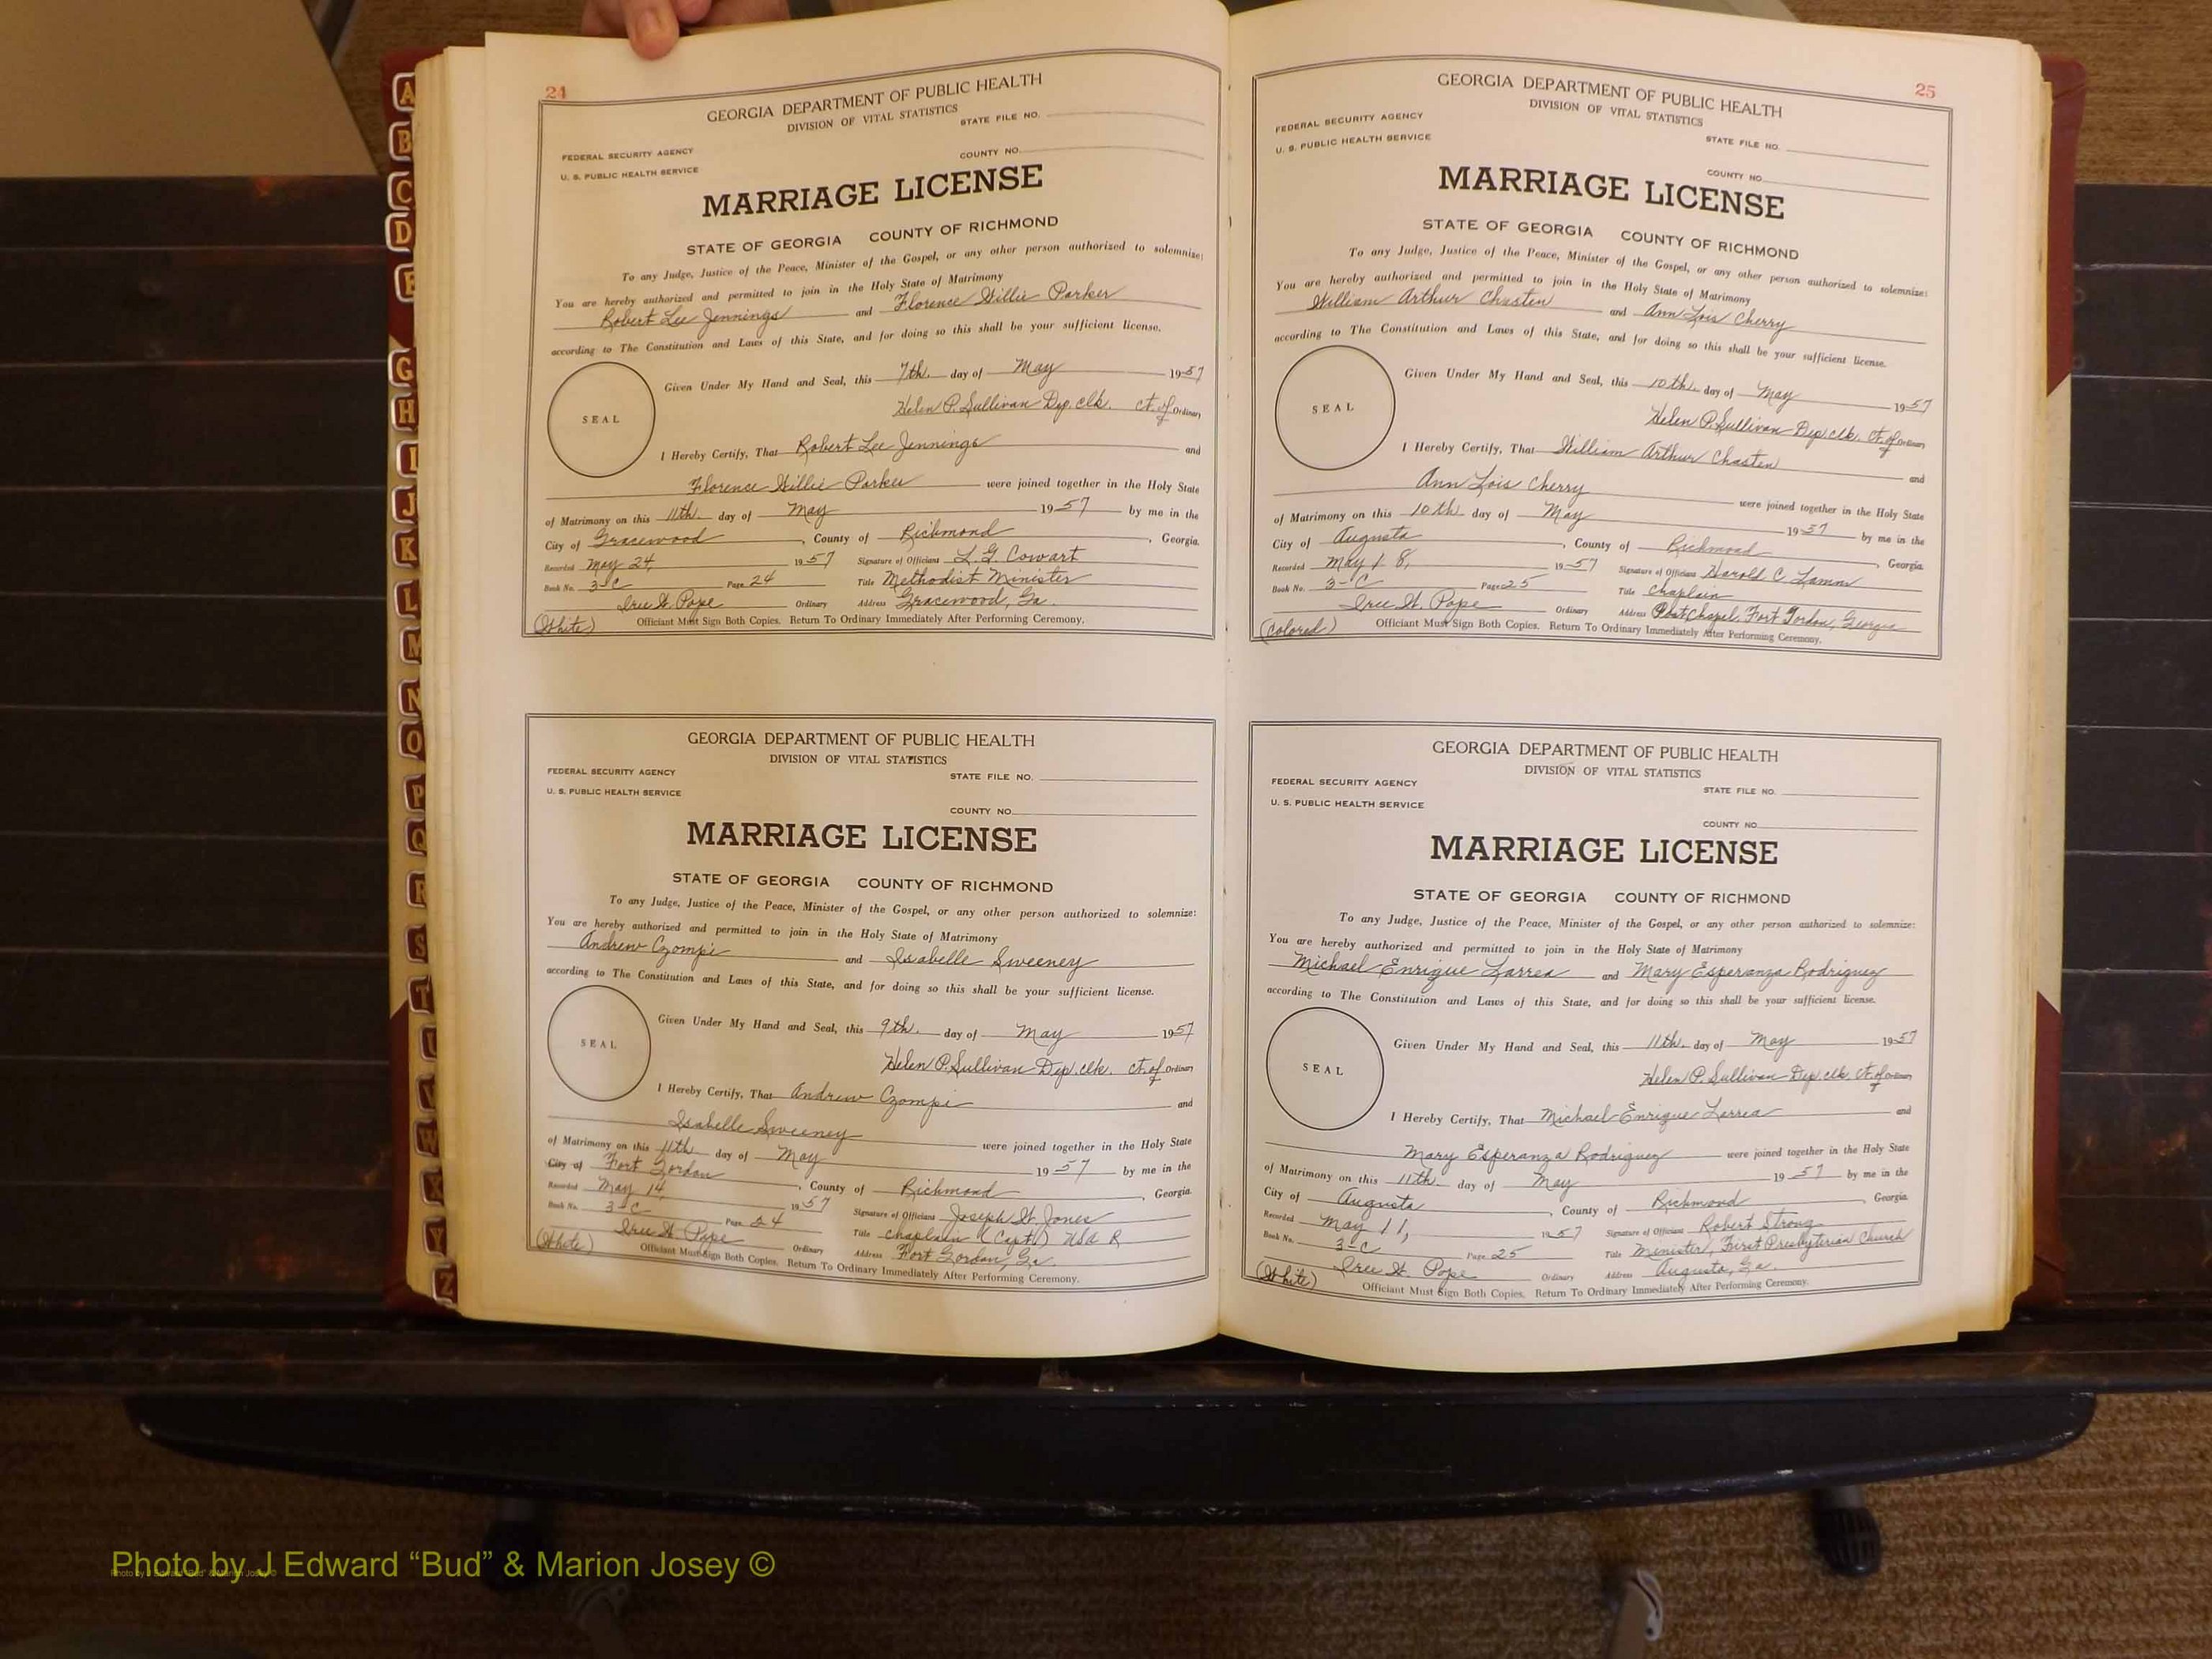 A
B
C
D
E
G
H
I
J
K
L
M
N
O
P
Q
R
S
T
W
X
Y
Z
24
GEORGIA DEPARTMENT OF PUBLIC HEALTH
DIVISION OF VITAL STATISTICS
STATE FILE NO.
FEDERAL SECURITY AGENCY
COUNTY NO.
U. S. PUBLIC HEALTH SERVICE
MARRIAGE LICENSE
STATE OF GEORGIA COUNTY OF RICHMOND
To any Judge, Justice of the Peace, Minister of the Gospel, or any other person authorized to solemnize:
You are hereby authorized and permitted to join in the Holy State of Matrimony
Robert Lee Jennings and Florence Willie Parker
according to The Constitution and Laws of this State, and for doing so this shall be your sufficient license.
Given Under My Hand and Seal, this 7th. day of May 1957
SEAL
Helen P. Sullivan Dep. clk. Ct. of Ordinary
I Hereby Certify, That Robert Lee Jennings and
Florence Willie Parker were joined together in the Holy State
of Matrimony on this 11th. day of May 1957 by me in the
City of Gracewood, County of Richmond, Georgia.
Recorded May 24, 1957 Signature of Officiant L. G. Cowart
Book No. 3-C Page 24 Title Methodist Minister
W. Pope Ordinary Address Gracewood, Ga.
(White) Officiant Must Sign Both Copies. Return To Ordinary Immediately After Performing Ceremony.
GEORGIA DEPARTMENT OF PUBLIC HEALTH
DIVISION OF VITAL STATISTICS
FEDERAL SECURITY AGENCY
STATE FILE NO.
U. S. PUBLIC HEALTH SERVICE
COUNTY NO.
MARRIAGE LICENSE
STATE OF GEORGIA COUNTY OF RICHMOND
To any Judge, Justice of the Peace, Minister of the Gospel, or any other person authorized to solemnize:
You are hereby authorized and permitted to join in the Holy State of Matrimony
Andrew Czompi and Isabelle Sweeney
according to The Constitution and Laws of this State, and for doing so this shall be your sufficient license.
Given Under My Hand and Seal, this 9th. day of May 1957
SEAL
Helen P. Sullivan Dep. clk. Ct. of Ordinary
I Hereby Certify, That Andrew Czompi and
Isabelle Sweeney were joined together in the Holy State
of Matrimony on this 11th. day of May 1957 by me in the
City of Fort Gordon, County of Richmond, Georgia.
Recorded May 14, 1957 Signature of Officiant Joseph W. Jones
Book No. 3-C Page 24 Title Chaplain (Capt.) USAR
W. Pope Ordinary Address Fort Gordon, Ga.
(White) Officiant Must Sign Both Copies. Return To Ordinary Immediately After Performing Ceremony.
25
GEORGIA DEPARTMENT OF PUBLIC HEALTH
DIVISION OF VITAL STATISTICS
FEDERAL SECURITY AGENCY
STATE FILE NO.
U. S. PUBLIC HEALTH SERVICE
COUNTY NO.
MARRIAGE LICENSE
STATE OF GEORGIA COUNTY OF RICHMOND
To any Judge, Justice of the Peace, Minister of the Gospel, or any other person authorized to solemnize:
You are hereby authorized and permitted to join in the Holy State of Matrimony
William Arthur Chasten and Ann Lois Cherry
according to The Constitution and Laws of this State, and for doing so this shall be your sufficient license.
Given Under My Hand and Seal, this 10th. day of May 1957
SEAL
Helen P. Sullivan Dep. clk. Ct. of Ordinary
I Hereby Certify, That William Arthur Chasten and
Ann Lois Cherry were joined together in the Holy State
of Matrimony on this 10th. day of May 1957 by me in the
City of Augusta, County of Richmond, Georgia.
Recorded May 18, 1957 Signature of Officiant Harold C. Lamm
Book No. 3-C Page 25 Title Chaplain
W. Pope Ordinary Address Post Chapel, Fort Gordon, Georgia
(Colored) Officiant Must Sign Both Copies. Return To Ordinary Immediately After Performing Ceremony.
GEORGIA DEPARTMENT OF PUBLIC HEALTH
DIVISION OF VITAL STATISTICS
FEDERAL SECURITY AGENCY
STATE FILE NO.
U. S. PUBLIC HEALTH SERVICE
COUNTY NO.
MARRIAGE LICENSE
STATE OF GEORGIA COUNTY OF RICHMOND
To any Judge, Justice of the Peace, Minister of the Gospel, or any other person authorized to solemnize:
You are hereby authorized and permitted to join in the Holy State of Matrimony
Michael Enrique Larrea and Mary Esperanza Rodriguez
according to The Constitution and Laws of this State, and for doing so this shall be your sufficient license.
Given Under My Hand and Seal, this 11th. day of May 1957
SEAL
Helen P. Sullivan Dep. clk. Ct. of Ordinary
I Hereby Certify, That Michael Enrique Larrea and
Mary Esperanza Rodriguez were joined together in the Holy State
of Matrimony on this 11th. day of May 1957 by me in the
City of Augusta, County of Richmond, Georgia.
Recorded May 11, 1957 Signature of Officiant Robert Strong
Book No. 3-C Page 25 Title Minister, First Presbyterian Church
W. Pope Ordinary Address Augusta, Ga.
(White) Officiant Must Sign Both Copies. Return To Ordinary Immediately After Performing Ceremony.
Photo by J Edward “Bud” & Marion Josey ©
Photo by J Edward “Bud” & Marion Josey ©